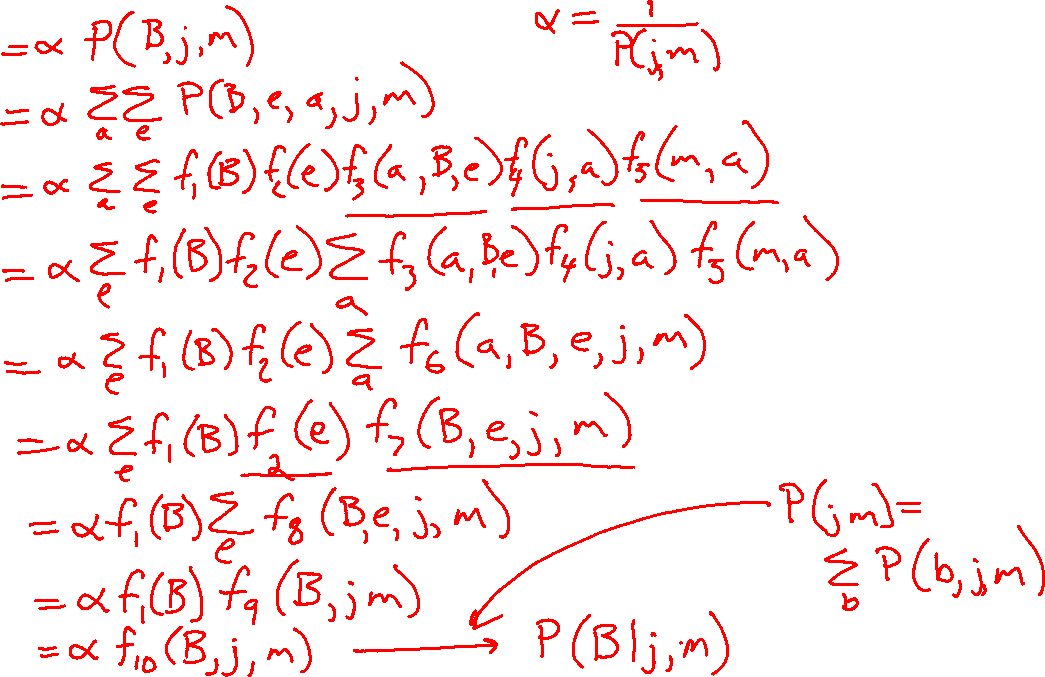 = α P(B, j, m)    α = 1 / P(j, m)
= α Σ_a Σ_e P(B, e, a, j, m)
= α Σ_a Σ_e f₁(B) f₂(e) f₃(a, B, e) f₄(j, a) f₅(m, a)
= α Σ_e f₁(B) f₂(e) Σ_a f₃(a, B, e) f₄(j, a) f₅(m, a)
= α Σ_e f₁(B) f₂(e) Σ_a f₆(a, B, e, j, m)
= α Σ_e f₁(B) f₂(e) f₇(B, e, j, m)
= α f₁(B) Σ_e f₈(B, e, j, m)    P(j m) =
Σ_b P(b, j, m)
= α f₁(B) f₉(B, j m)
= α f₁₀(B, j, m) → P(B | j, m)